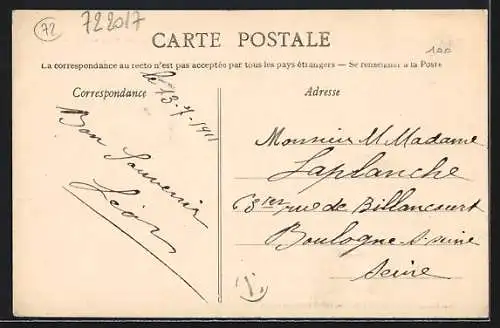 72
722017
100
CARTE POSTALE
La correspondance au recto n'est pas acceptée par tous les pays étrangers — Se renseigner à la Poste
Correspondance
le 13-7-1911
Bon Souvenir
Léon
Adresse
Monsieur M Madame
Laplanche
rue de Billancourt
Boulogne s. seine
Seine